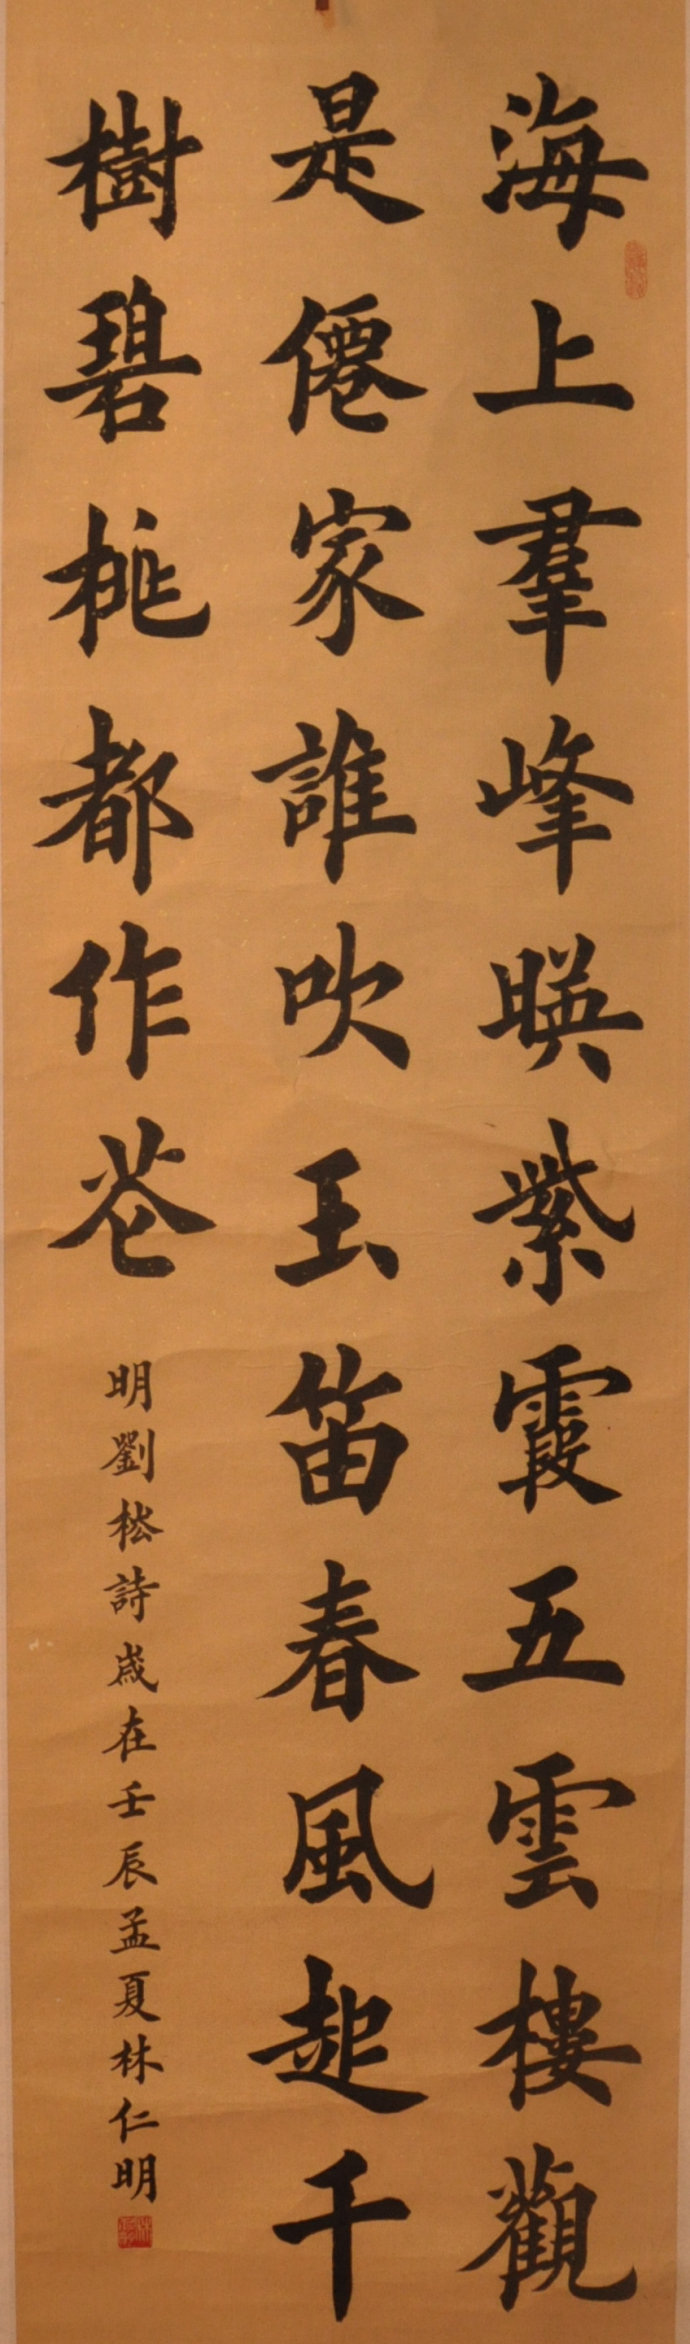 海上羣峰暎紫霞五雲樓觀
是僊家誰吹玉笛春風起千
樹碧桃都作花
明劉松詩歲在壬辰孟夏林仁明